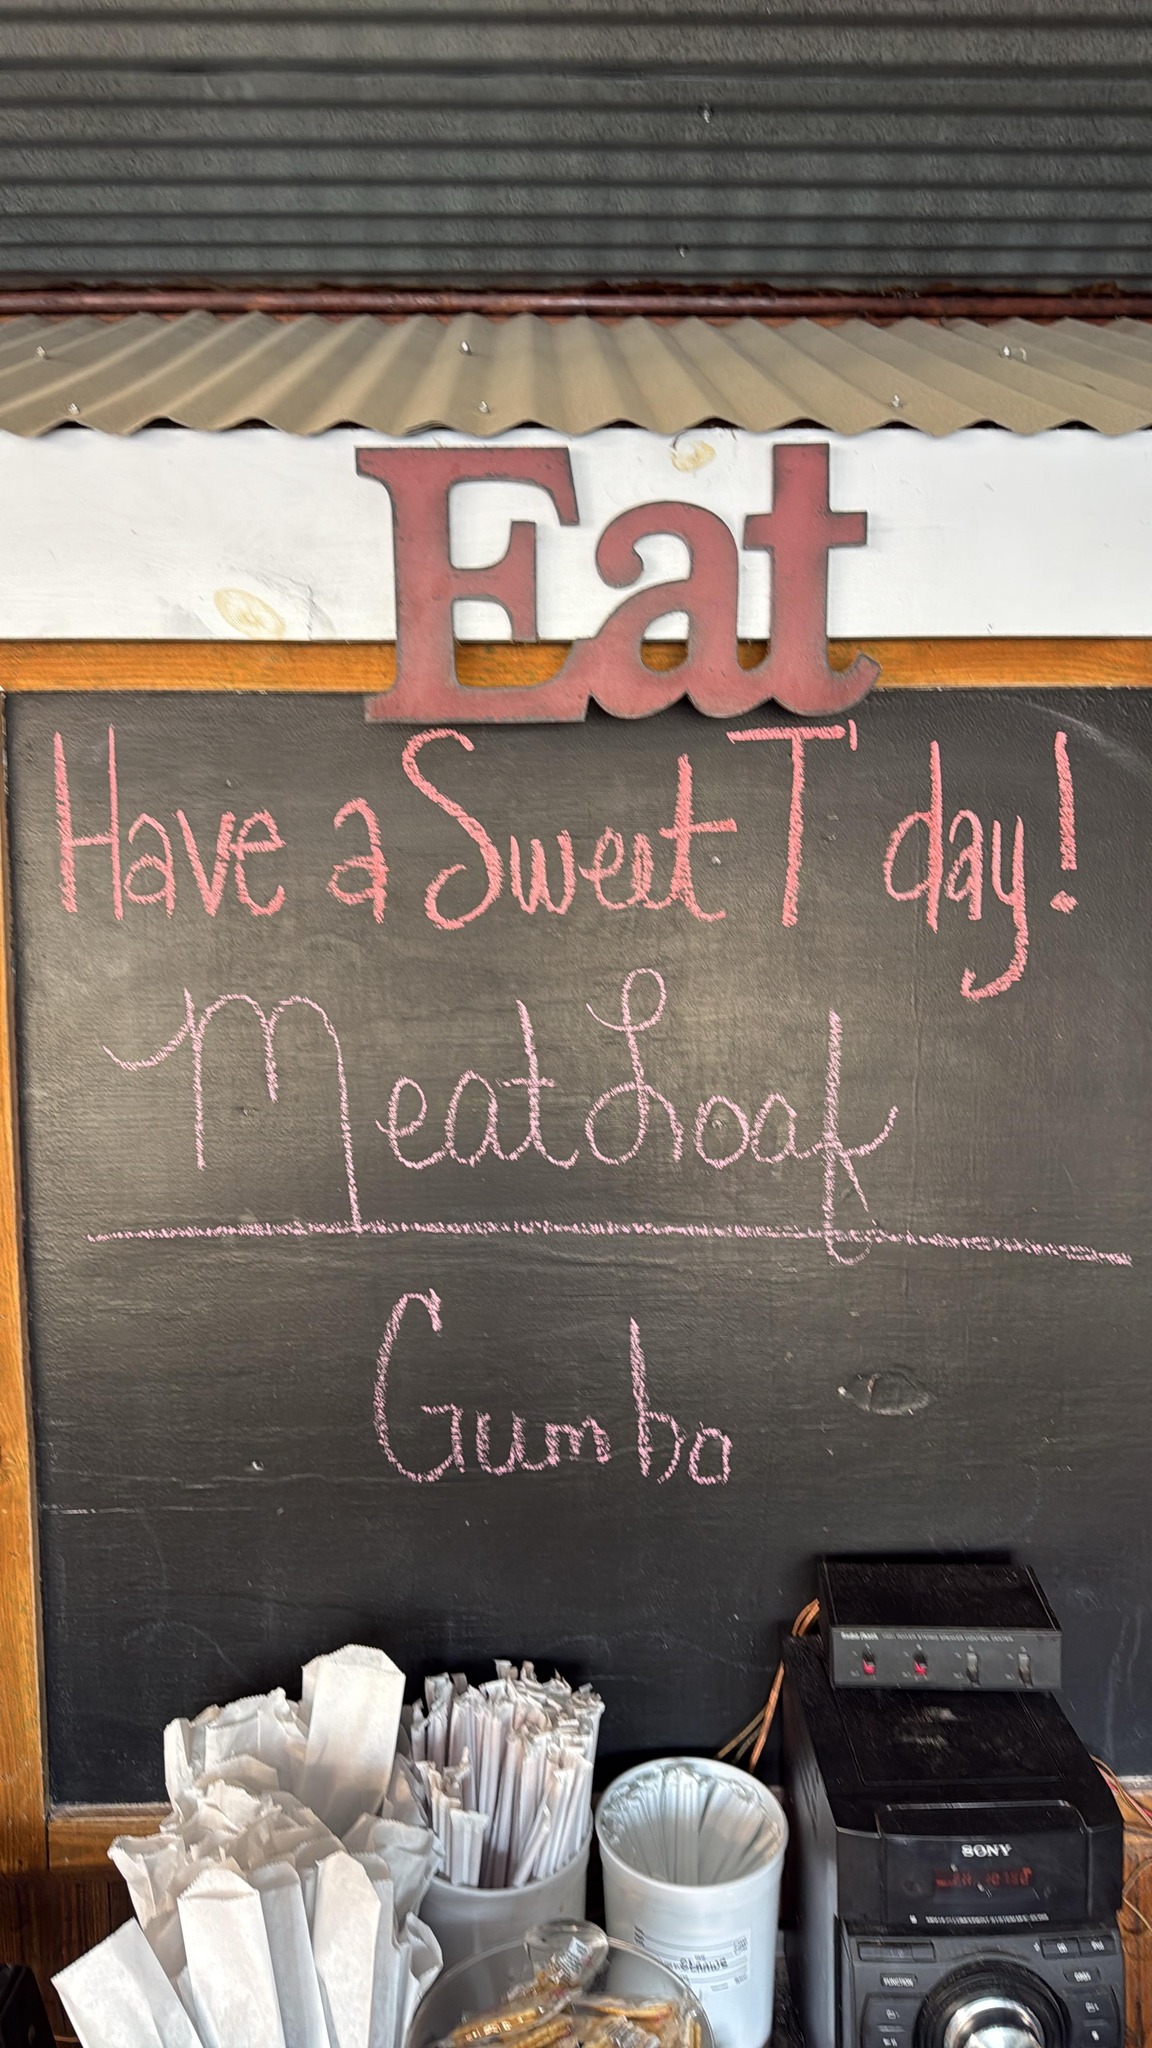 Eat
Have a Sweet T' day!
Meat Loaf
Gumbo
SONY
FUNCTION